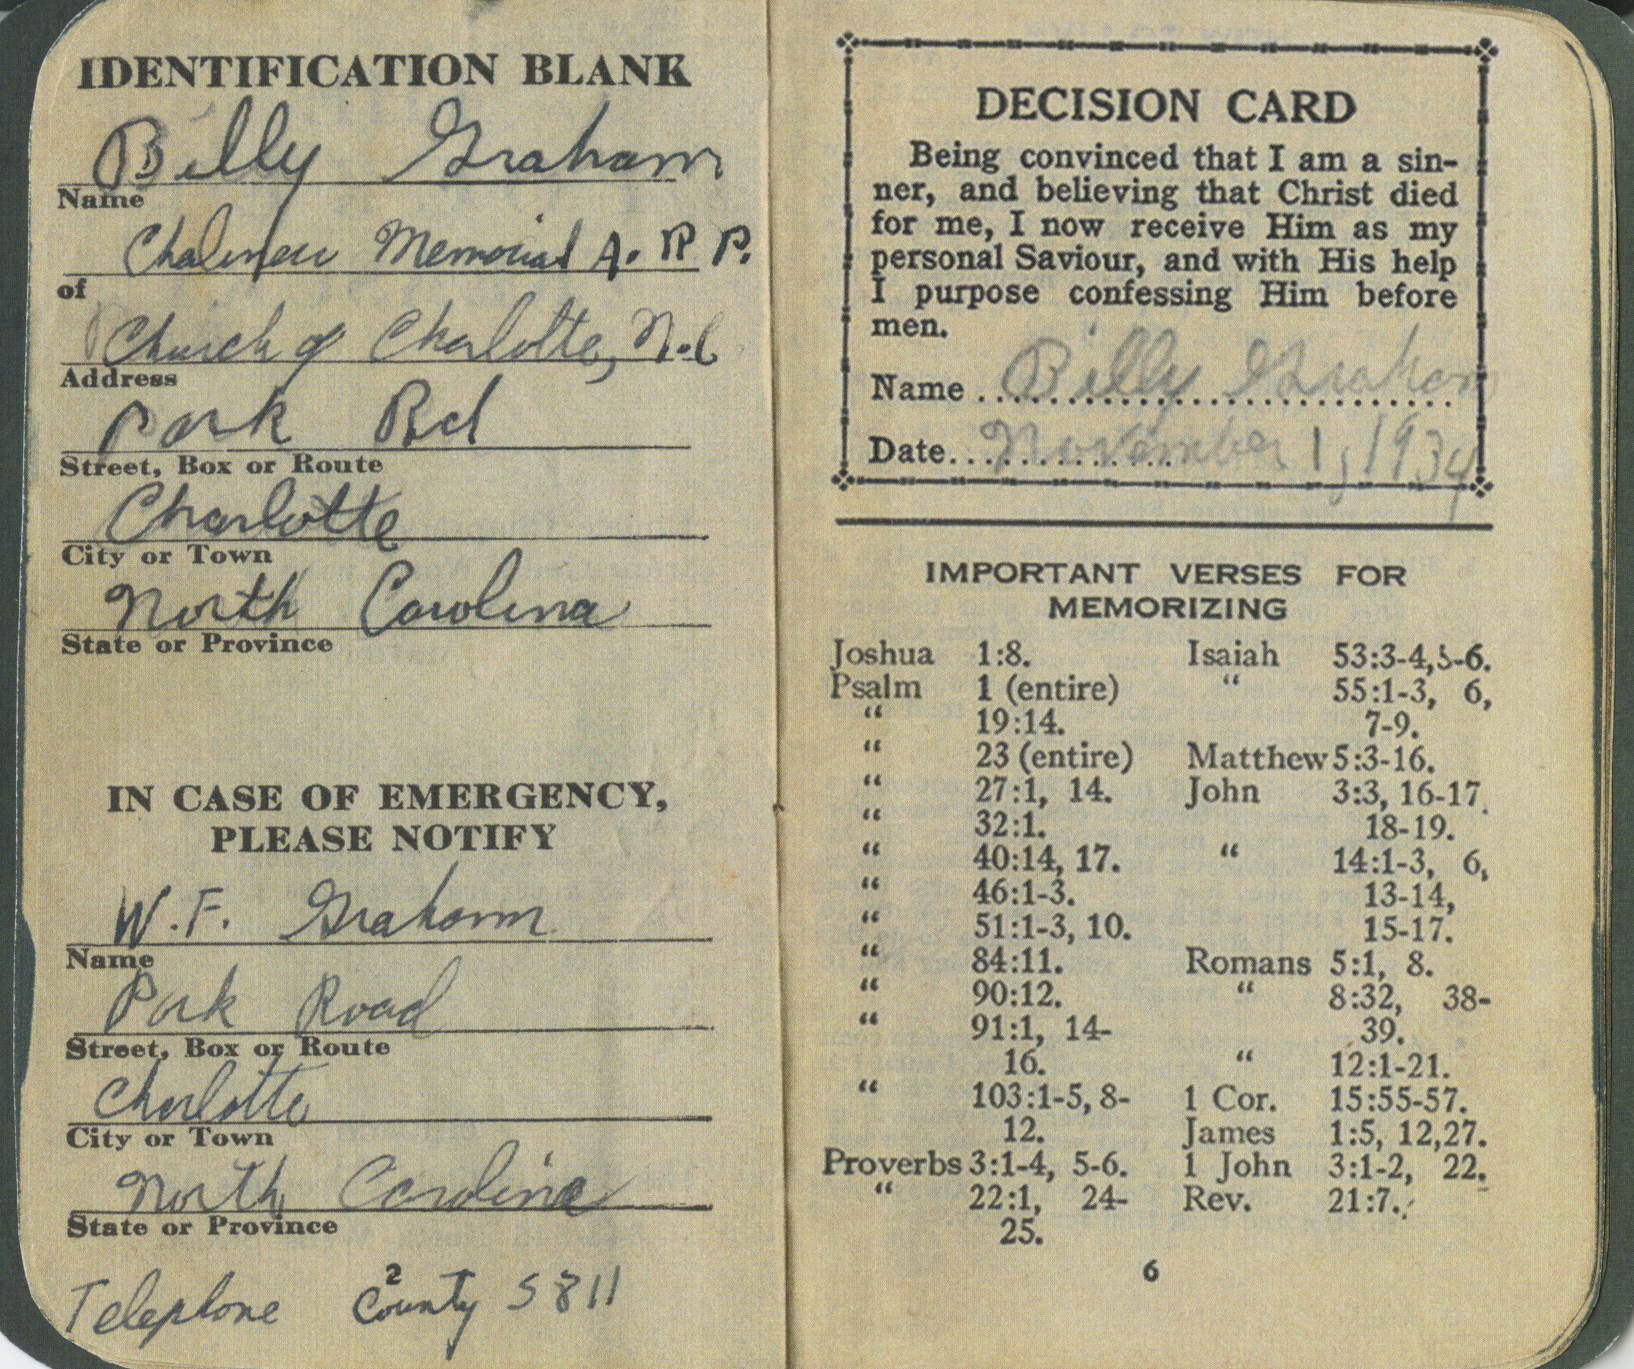 IDENTIFICATION BLANK
Billy Graham
Name
Chalmers Memorial A. R P.
of
Church of Charlotte, N.C
Address
Park Rd
Street, Box or Route
Charlotte
City or Town
North Carolina
State or Province
IN CASE OF EMERGENCY,
PLEASE NOTIFY
W. F. Graham
Name
Park Road
Street, Box or Route
Charlotte
City or Town
North Carolina
State or Province
2
Telephone County 5811
DECISION CARD
Being convinced that I am a sin-
ner, and believing that Christ died
for me, I now receive Him as my
personal Saviour, and with His help
I purpose confessing Him before
men.
Name Billy Graham
Date November 1, 1934
IMPORTANT VERSES FOR
MEMORIZING
Joshua 1:8.
Psalm 1 (entire)
" 19:14.
" 23 (entire)
" 27:1, 14.
" 32:1.
" 40:14, 17.
" 46:1-3.
" 51:1-3, 10.
" 84:11.
" 90:12.
" 91:1, 14-
16.
" 103:1-5, 8-
12.
Proverbs 3:1-4, 5-6.
" 22:1, 24-
25.
Isaiah 53:3-4,5-6.
" 55:1-3, 6,
7-9.
Matthew 5:3-16.
John 3:3, 16-17.
18-19.
" 14:1-3, 6,
13-14,
15-17.
Romans 5:1, 8.
" 8:32, 38-
39.
" 12:1-21.
1 Cor. 15:55-57.
James 1:5, 12,27.
1 John 3:1-2, 22.
Rev. 21:7.
6